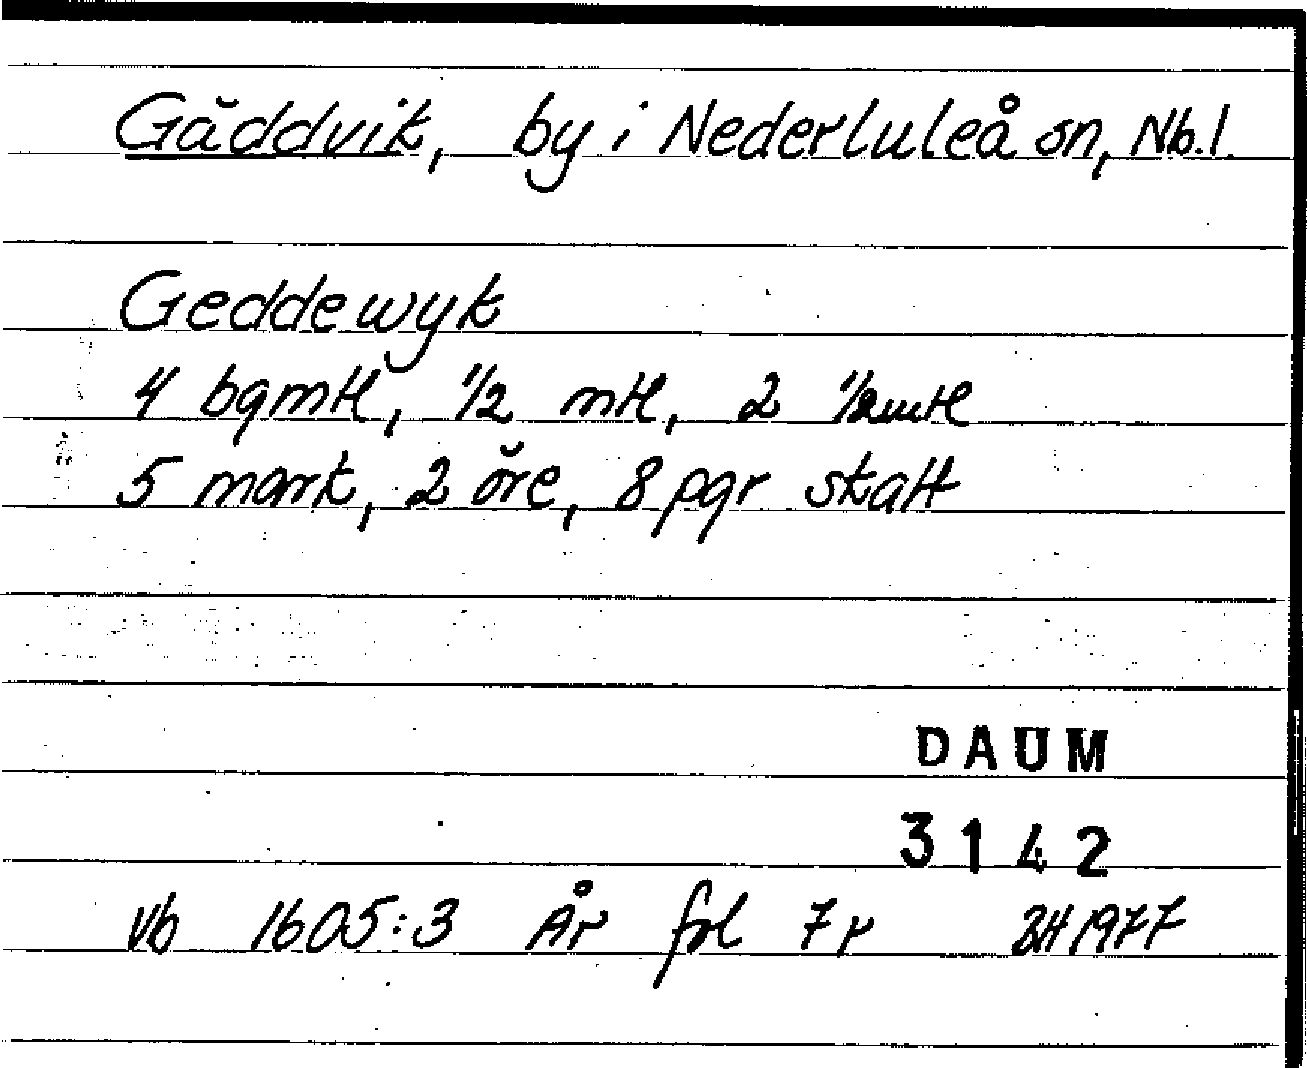 Gäddvik, by i Nederluleå sn, Nb.l.
Geddewyk
4 bgmtl, 1/2 mtl, 2 1/2mtl
5 mark, 2 öre, 8 pgr skatt
DAUM
3142
Vb 1605:3 År fol 7r 1977